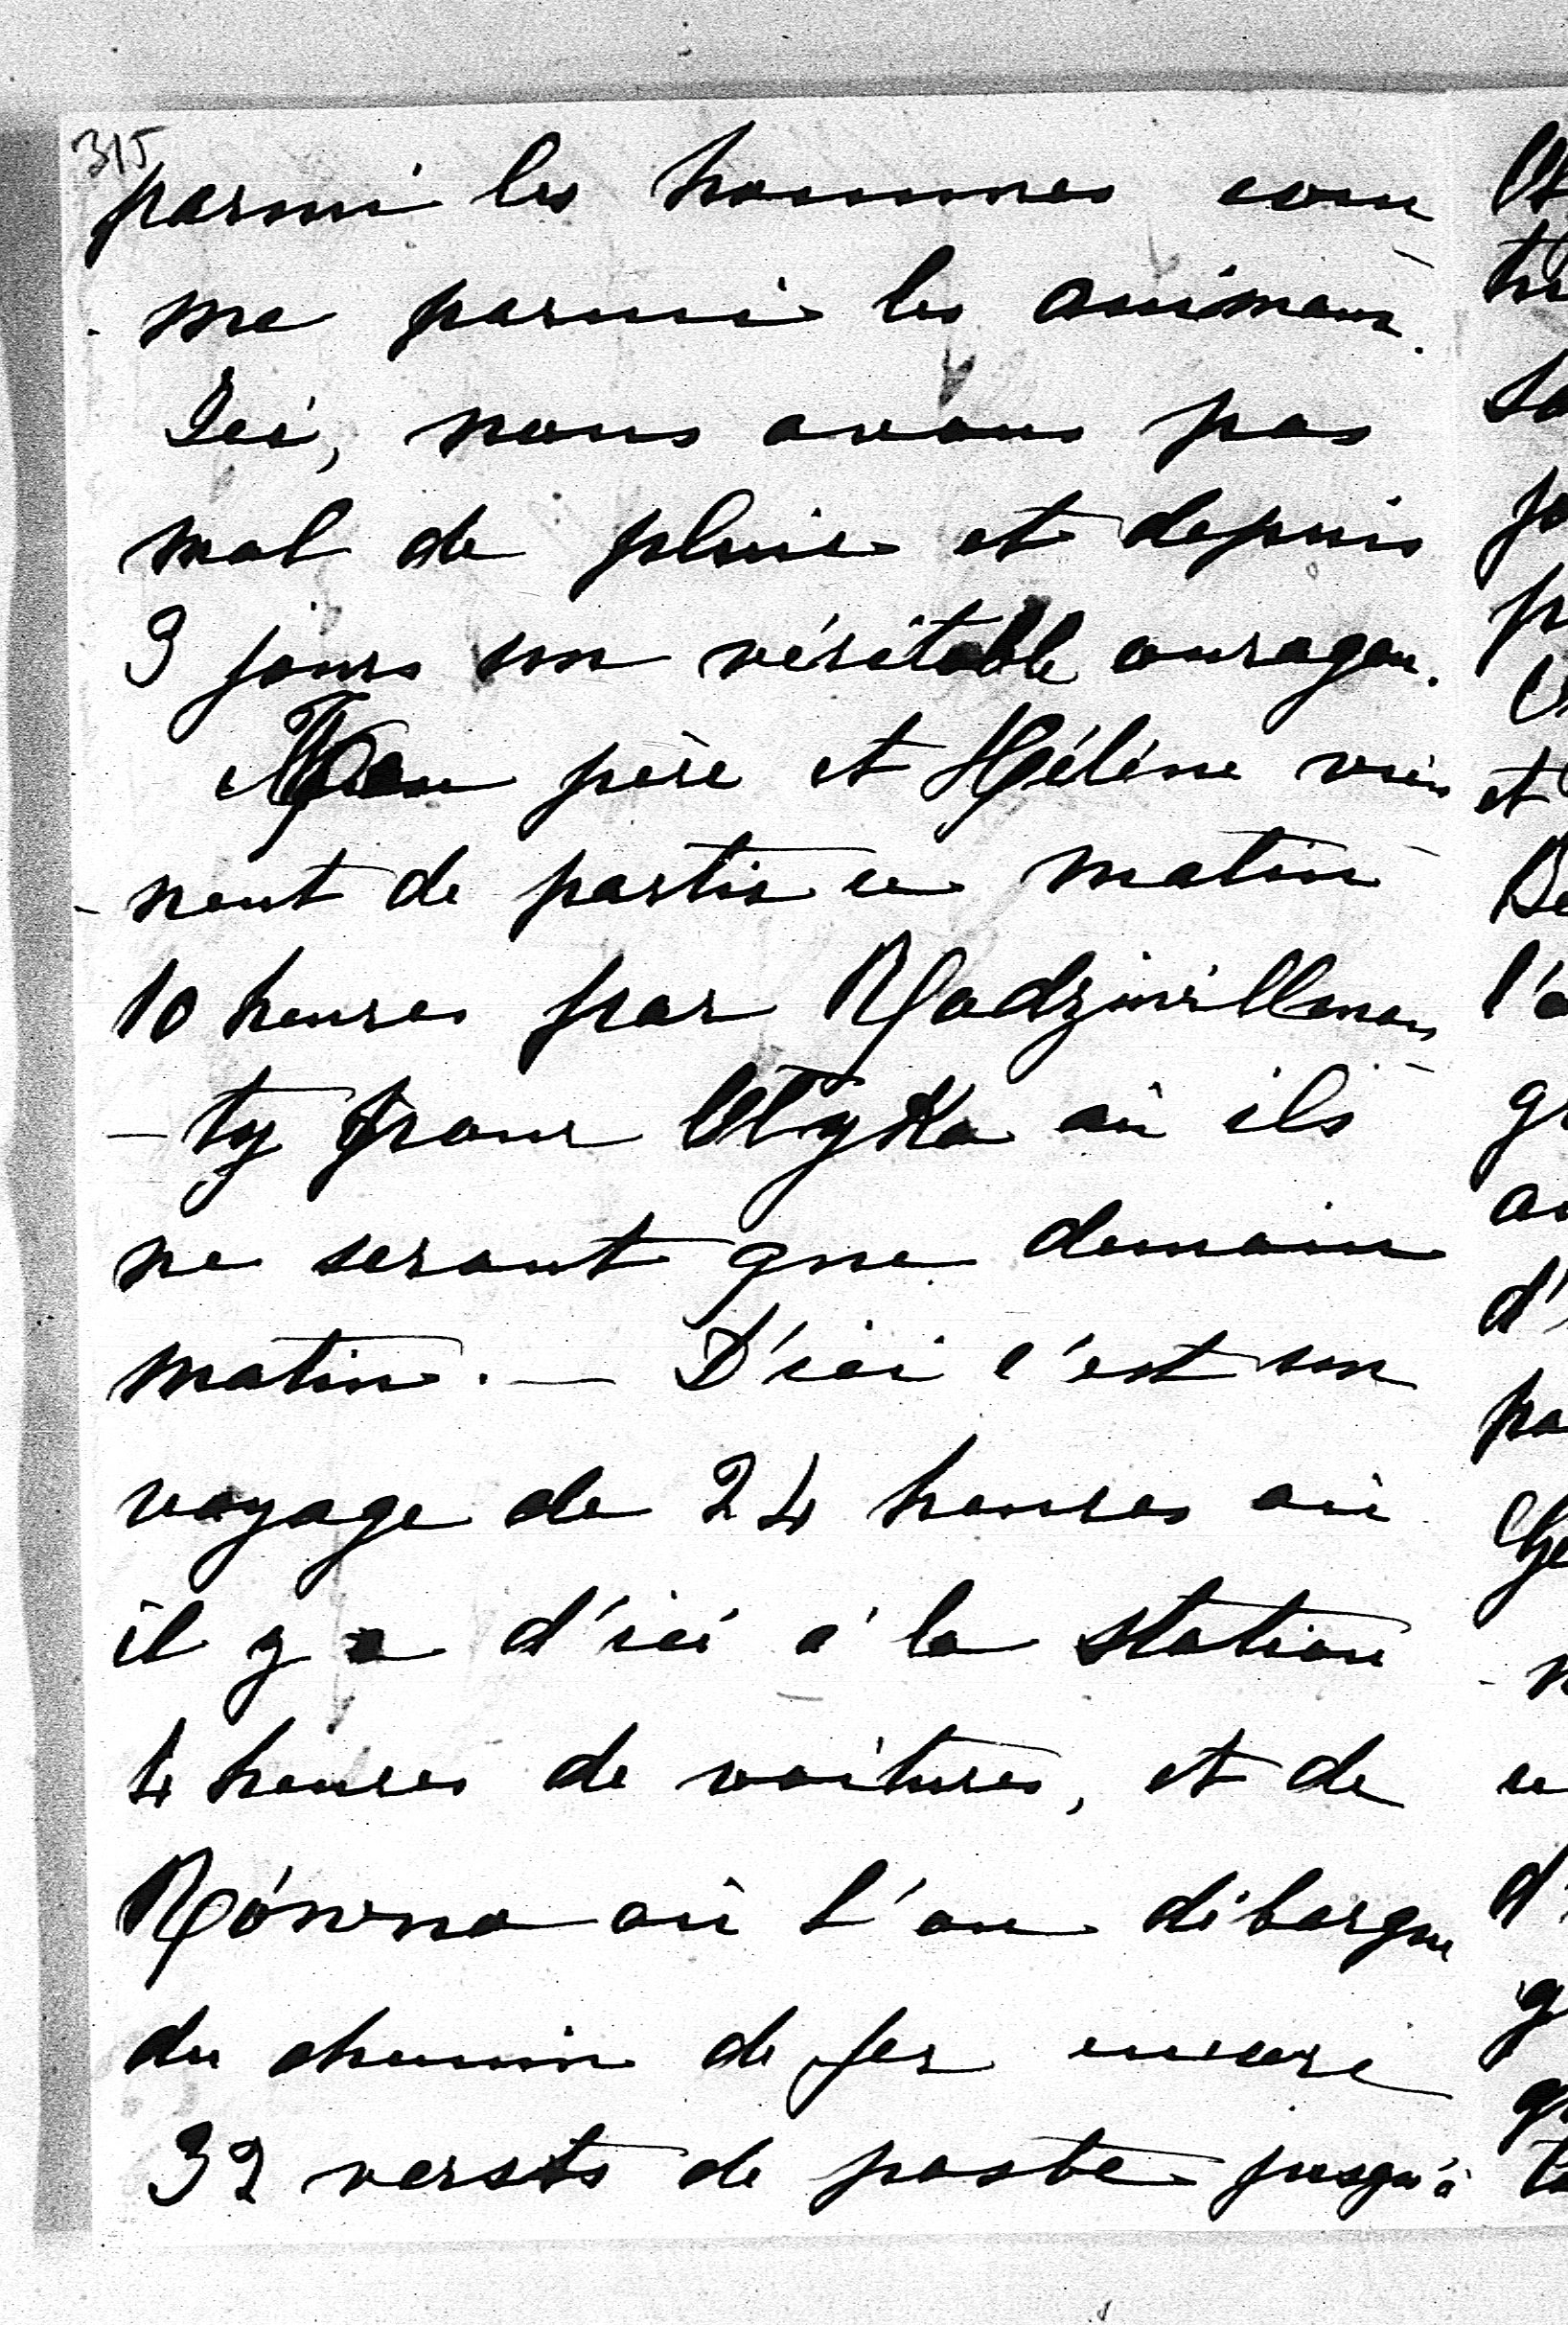 315
parmi les hommes com
-me parmi les animaux.
Ici, nous avons pas
mal de pluie et depuis
3 jours un véritable ouragan.
Mon père et Hélène vien
-nent de partir ce matin
10 heures par Radziwillmon
-ty pour Ołyka où ils
ne seront que demain
matin. — D'ici c'est un
voyage de 24 heures où
il y a d'ici à la station
4 heures de voitures, et de
Równo où l'on débarque
du chemin de fer encore
32 versts de poste jusqu'à